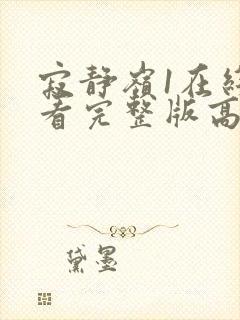 寂静嶺1在終
看完整版高
黛墨